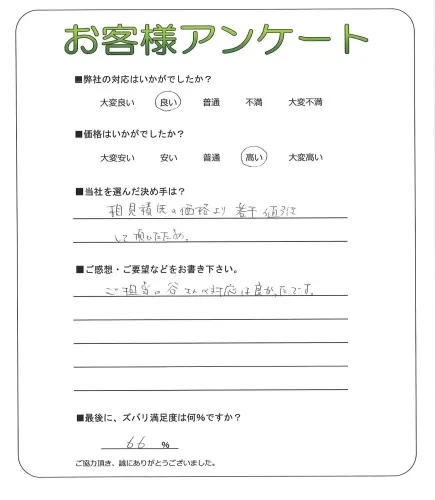 お客様アンケート
■弊社の対応はいかがでしたか？
大変良い 良い 普通 不満 大変不満
■価格はいかがでしたか？
大変安い 安い 普通 高い 大変高い
■当社を選んだ決め手は？
相見積店の価格より 若干 値引き
して頂いたため。
■ご感想・ご要望などをお書き下さい。
ご担当の谷さんへ対応は良かったです。
■最後に、ズバリ満足度は何%ですか？
66 %
ご協力頂き、誠にありがとうございました。